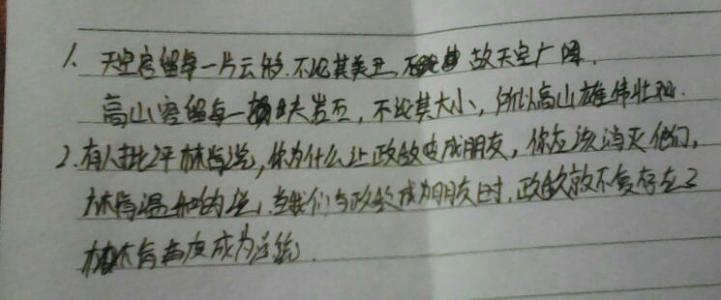 1. 天空容留每一片云彩,不论其美丑,故天空广阔.
高山容留每一块岩石,不论其大小,所以高山雄伟壮观.
2.有人批评林肯说,你为什么让政敌变成朋友,你应该消灭他们,
林肯温和的说,当我们与政敌成为朋友时,政敌就不复存在了
林肯再度成为总统.